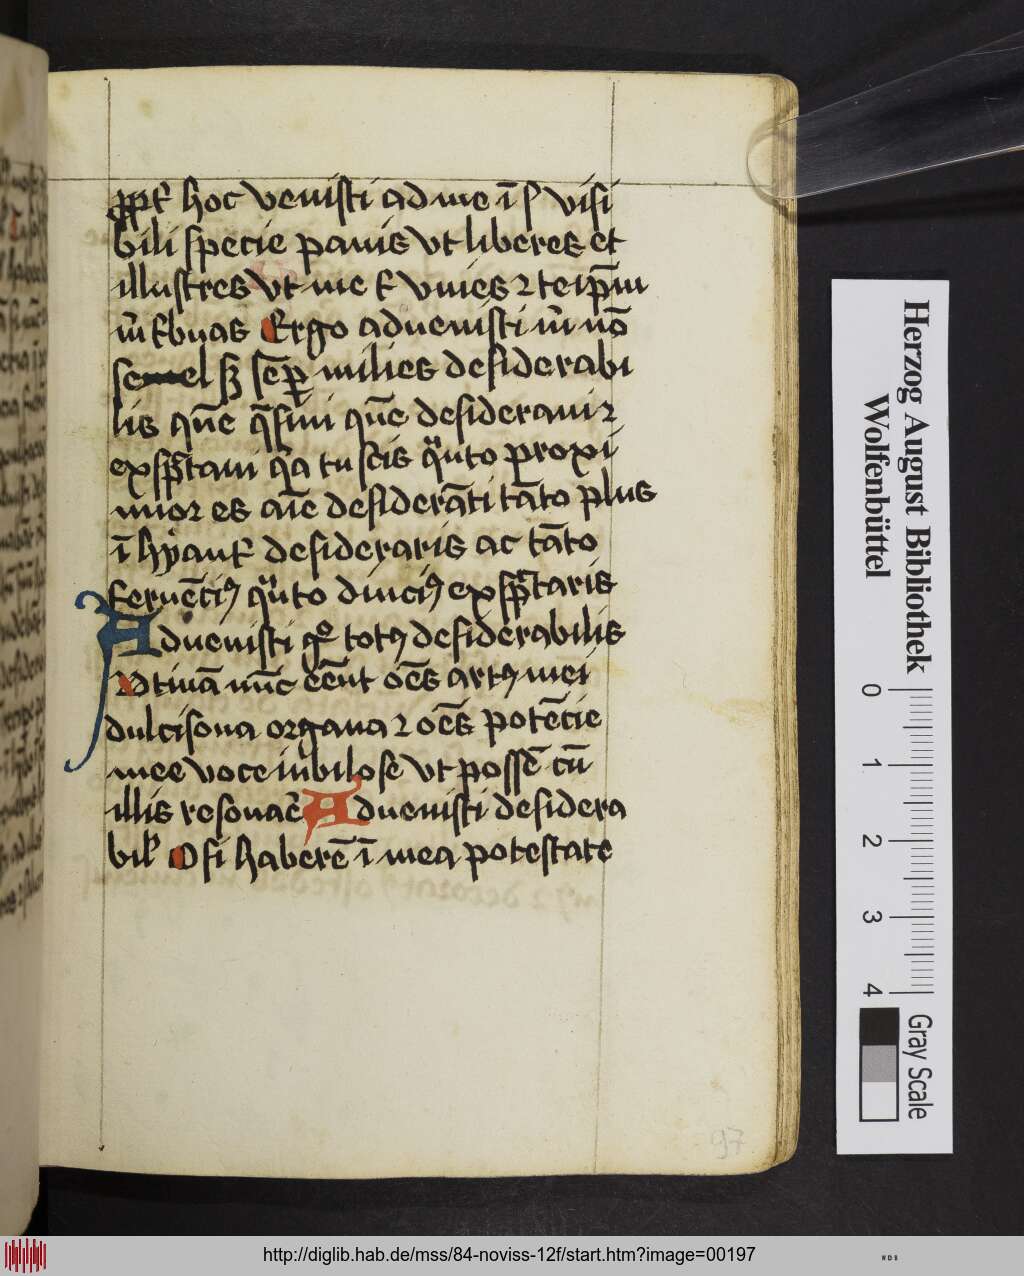 ppt̄ hoc venisti ad me ī ſ visi
bili specie panis vt liberes et
illustres vt me t vnies ⁊ teip̄m
m̄ t̄buas Ergo aduenisti m̄ nō
semel sꝫ sēp milies desiderabi
lis quē q̄siui quē desideraui ⁊
exspc̄taui q̄a tu scis q̄nto proxi
mior es aīe desiderāti tāto plus
ī hyant desideraris ac tāto
feruēciꝰ q̄nto diuciꝰ exspc̄taris
Aduenisti totꝰ desiderabilis
Vtinā nūc eēnt oēs artꝰ mei
dulcisona organa ⁊ oēs potēcie
mee voce iubilose vt possē cū
illis resonar̄ Aduenisti desidera
bil̄ O si haberē ī mea potestate
97
Herzog August Bibliothek
Wolfenbüttel
0 1 2 3 4
Gray Scale
http://diglib.hab.de/mss/84-noviss-12f/start.htm?image=00197